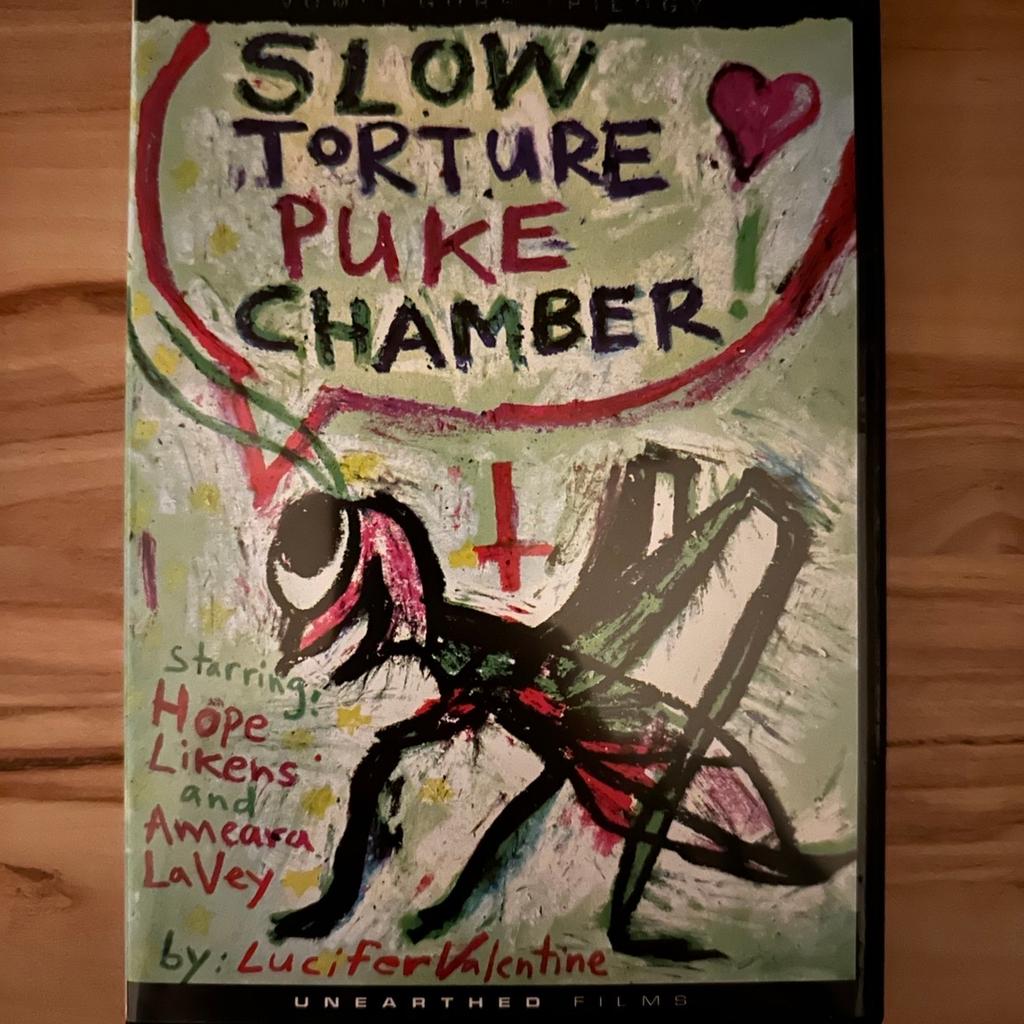 VOMIT GORE TRILOGY
SLOW
TORTURE
PUKE
CHAMBER!
starring:
Hope
Likens
and
Ameara
LaVey
by: Lucifer Valentine
UNEARTHED FILMS